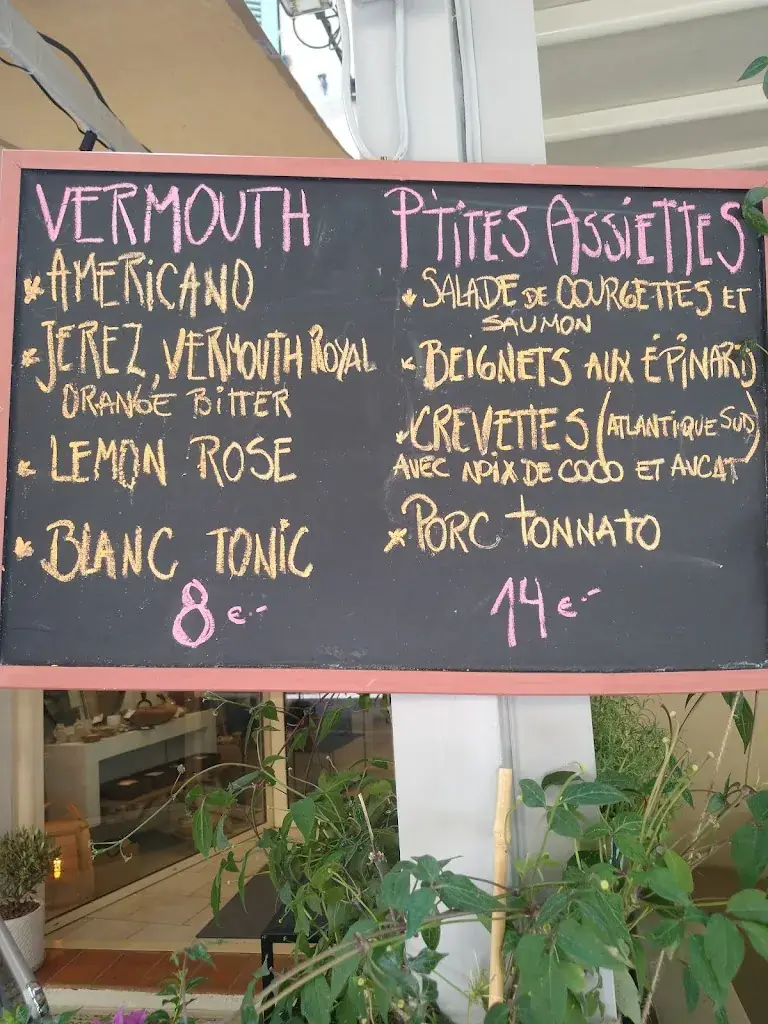 VERMOUTH
AMERICANO
JEREZ, VERMOUTH ROYAL
ORANGE BITTER
LEMON ROSE
BLANC TONIC
8€.-
P'TITES ASSIETTES
SALADE DE COURGETTES ET
SAUMON
BEIGNETS AUX ÉPINARDS
CREVETTES (ATLANTIQUE SUD)
AVEC NOIX DE COCO ET AVCAT
PORC TONNATO
14€.-